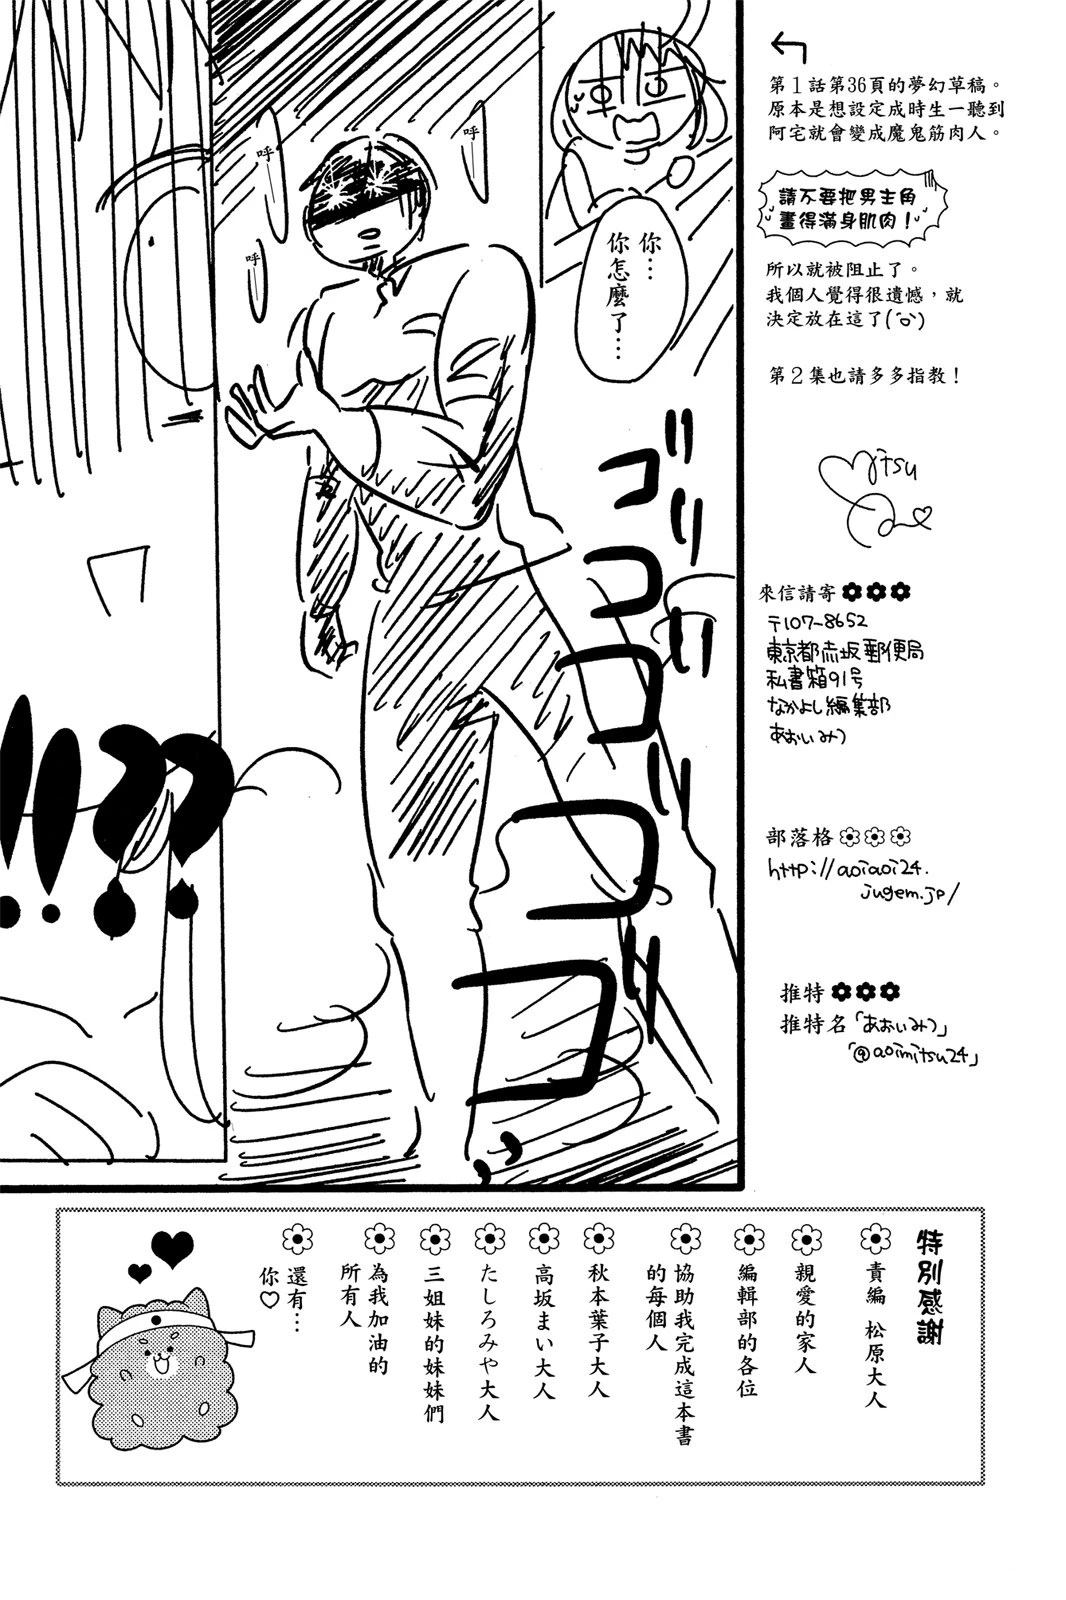 第1話第36頁的夢幻草稿。
原本是想設定成時生一聽到
阿宅就會變成魔鬼筋肉人。
請不要把男主角
畫得滿身肌肉！
所以就被阻止了。
我個人覺得很遺憾，就
決定放在這了
第2集也請多多指教！
Mitsu
來信請寄
〒107-8652
東京都赤坂郵便局
私書箱91号
なかよし編集部
あおいみつ
部落格
http://aoiaoi24.
jugem.jp/
推特
推特名「あおいみつ」
「@aoimitsu24」
你…
你怎麼了…
呼
呼
呼
ゴゴゴゴゴ
!!??
特別感謝
責編 松原大人
親愛的家人
編輯部的各位
協助我完成這本書
的每個人
秋本葉子大人
高坂まい大人
たしろみや大人
三姐妹的妹妹們
為我加油的
所有人
還有…
你♡